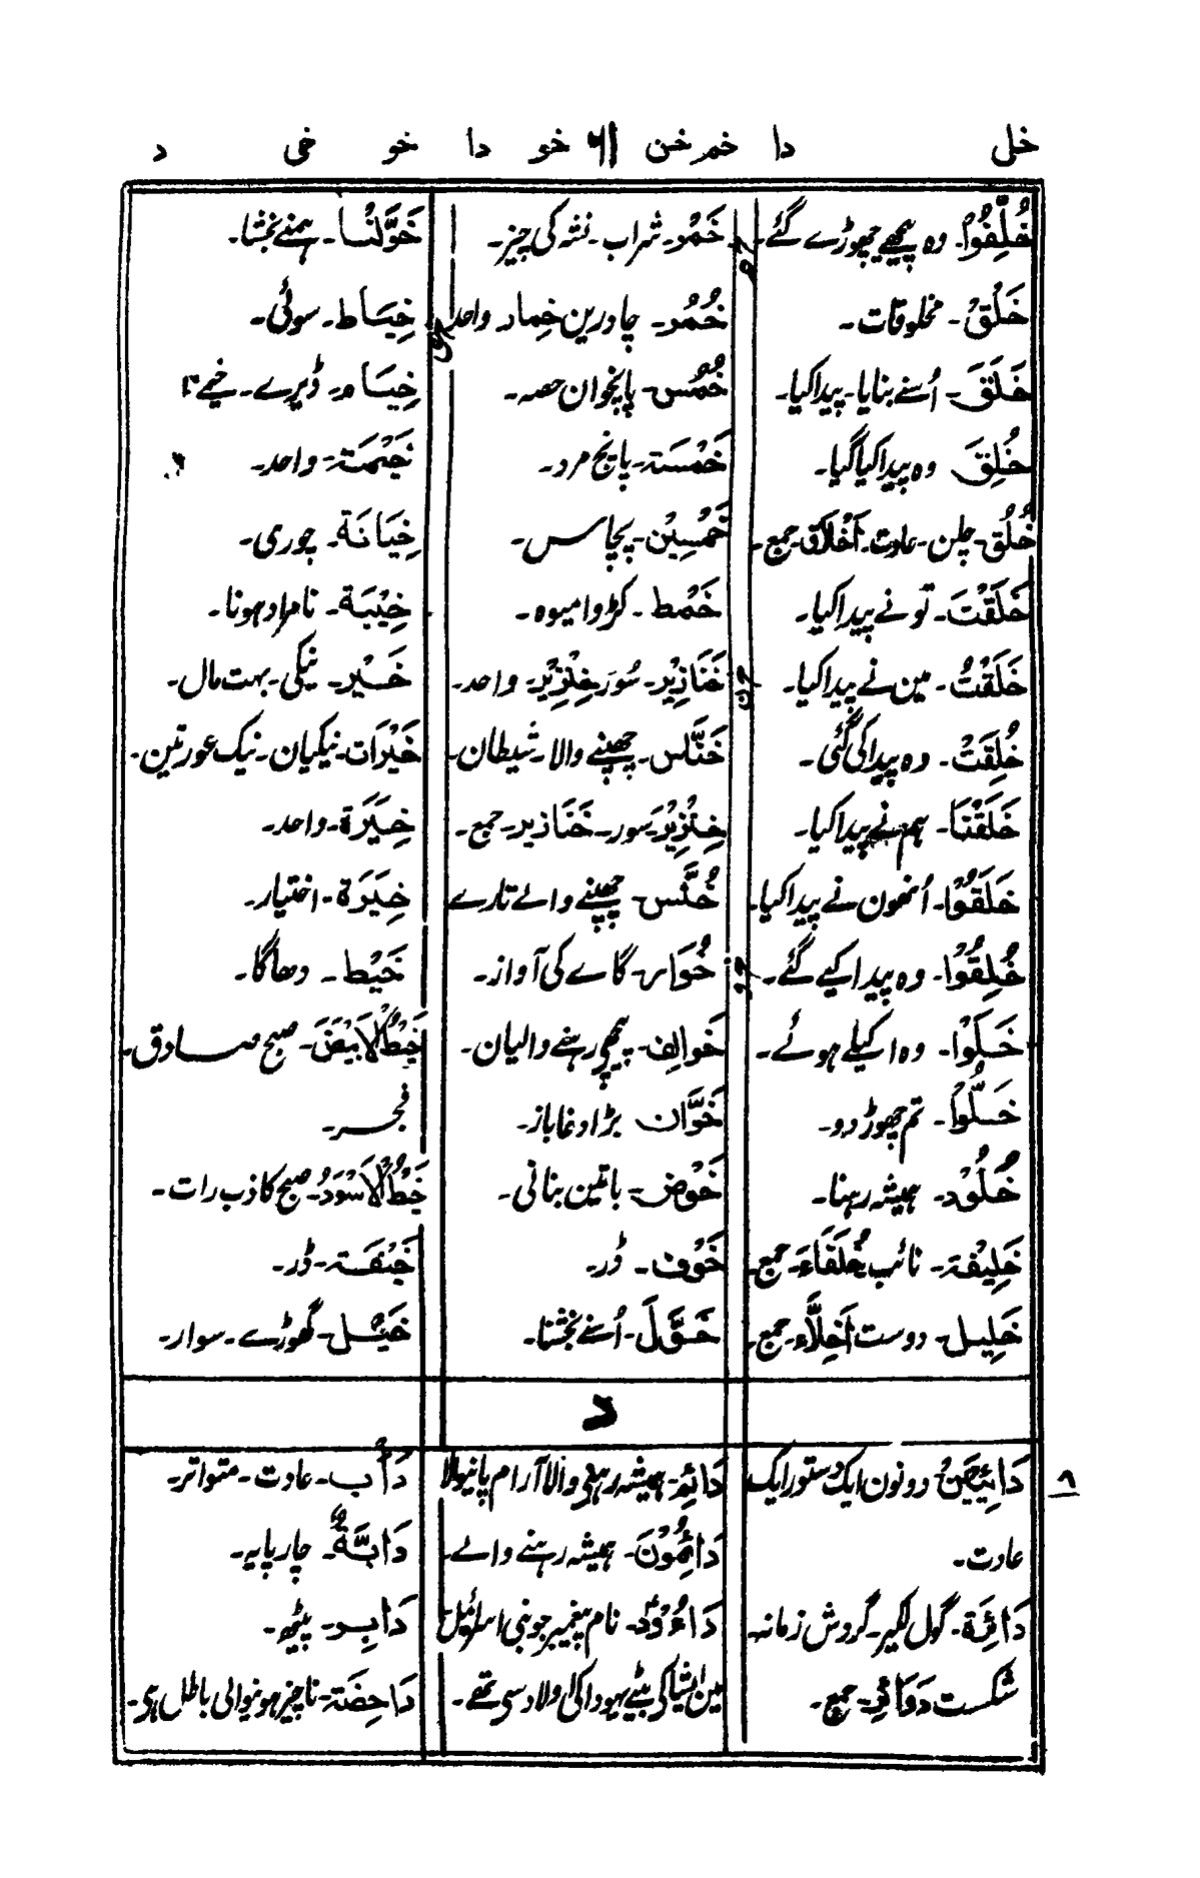 خل دا خمر خن ۶۱ خو دا خو خی د
خُلِّفُوْا۔ وہ پیچھے چھوڑے گئے۔
خَلْقٌ۔ مخلوقات۔
خَلَقَ۔ اُسنے بنایا۔ پیدا کیا۔
خُلِقَ وہ پیدا کیا گیا۔
خُلُق۔ چلن۔ عادت۔ اَخْلَاق۔ جمع۔
خَلَقْتَ۔ تو نے پیدا کیا۔
خَلَقْتُ۔ مین نے پیدا کیا۔
خُلِقَتْ۔ وہ پیدا کی گئی۔
خَلَقْنَا۔ ہم نے پیدا کیا۔
خَلَقُوْا۔ اُنھون نے پیدا کیا۔
خُلِقُوْا۔ وہ پیدا کیے گئے۔
خَلَوْا۔ وہ اکیلے ہوئے۔
خَلُّوْا۔ تم چھوڑ دو۔
خُلُوْد۔ ہمیشہ رہنا۔
خَلِیْفَۃ۔ نائب خُلَفَاءَ۔ جمع۔
خَلِیل۔ دوست اَخِلَّاء۔ جمع۔
خم
خَمْر۔ شراب۔ نشہ کی چیز۔
خُمُر۔ چادرین خِمار واحد
خُمُس۔ پانچوان حصہ۔
خَمْسَۃ۔ پانچ مرد۔
خَمْسِیْن۔ پچاس۔
خَمْط۔ کڑوا میوہ۔
خن
خَنَازِیْر۔ سُور خِنْزِیْر۔ واحد۔
خَنَّاس۔ چھپنے والا۔ شیطان۔
خِنْزِیْر۔ سور۔ خَنَازیر۔ جمع۔
خُنَّس۔ چھپنے والے تارے
خو
خُوَار۔ گاے کی آواز۔
خَوالِف۔ پیچھے رہنے والیان۔
خَوَّان بڑا دغاباز۔
خَوْض۔ باتین بنانی۔
خَوْف۔ ڈر۔
خَوَّلَ۔ اُسنے بخشا۔
خَوَّلْنٰا۔ ہمنے بخشا۔
خی
خِیَاط۔ سوئی۔
خِیَام۔ ڈیرے۔ خیمے
خَیْمَۃ۔ واحد۔
خِیَانَۃ۔ چوری۔
خِیْبَۃ۔ نامراد ہونا۔
خَیْر۔ نیکی۔ بہت مال۔
خَیْرَات۔ نیکیان۔ نیک عورتین۔
خِیَرَۃ۔ واحد۔
خِیَرَۃ۔ اختیار۔
خَیْط۔ دھاگا۔
خَیْطُ الْاَبْیَضَ۔ صبح صادق۔
فجر۔
خَیْطُ الْاَسْوَدُ۔ صبح کاذب رات۔
خِیْفَۃ۔ ڈر۔
خَیْل۔ گھوڑے۔ سوار۔
د
دَائِبَیْنِ دونون ایک دستور ایک
عادت۔
دَائِرَۃ۔ گول لکیر۔ گردش زمانہ
شکست دَوَائِر۔ جمع۔
دَائِم۔ ہمیشہ رہنے والا آرام پانیوالا
دَائِمُوْنَ۔ ہمیشہ رہنے والے۔
دَاءُوْد۔ نام پیغمبر جو بنی اسرائیل
مین ایشا کی بیٹے یہودا کی اولاد سی تھے۔
دَأب۔ عادت۔ متواتر۔
دَابَّۃٌ۔ چارپایہ۔
دَابِر۔ پیٹھ۔
دَاحِضَۃ۔ ناچیز ہونیوالی باطل ہی۔
۸